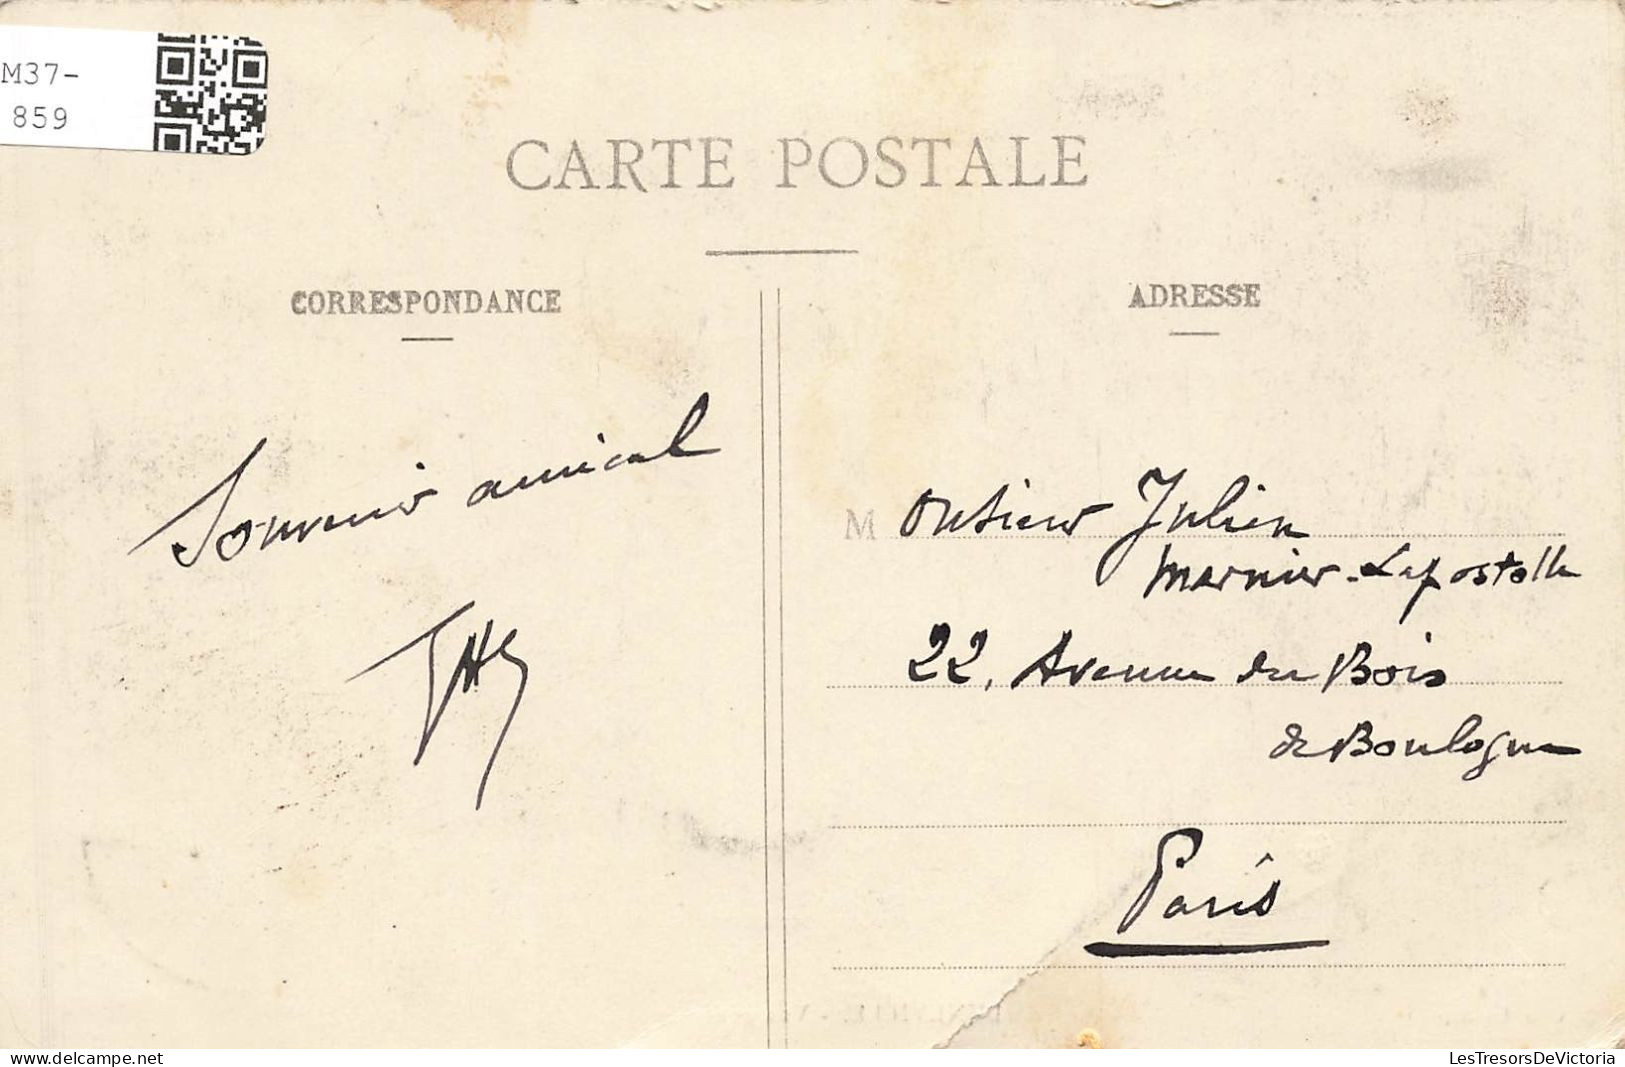 M37-
859
CARTE POSTALE
CORRESPONDANCE
ADRESSE
Souvenir amical
Monsieur Julien
Marnier-Lapostolle
22, Avenue du Bois
de Boulogne
Paris
delcampe.net
LesTresorsDeVictoria